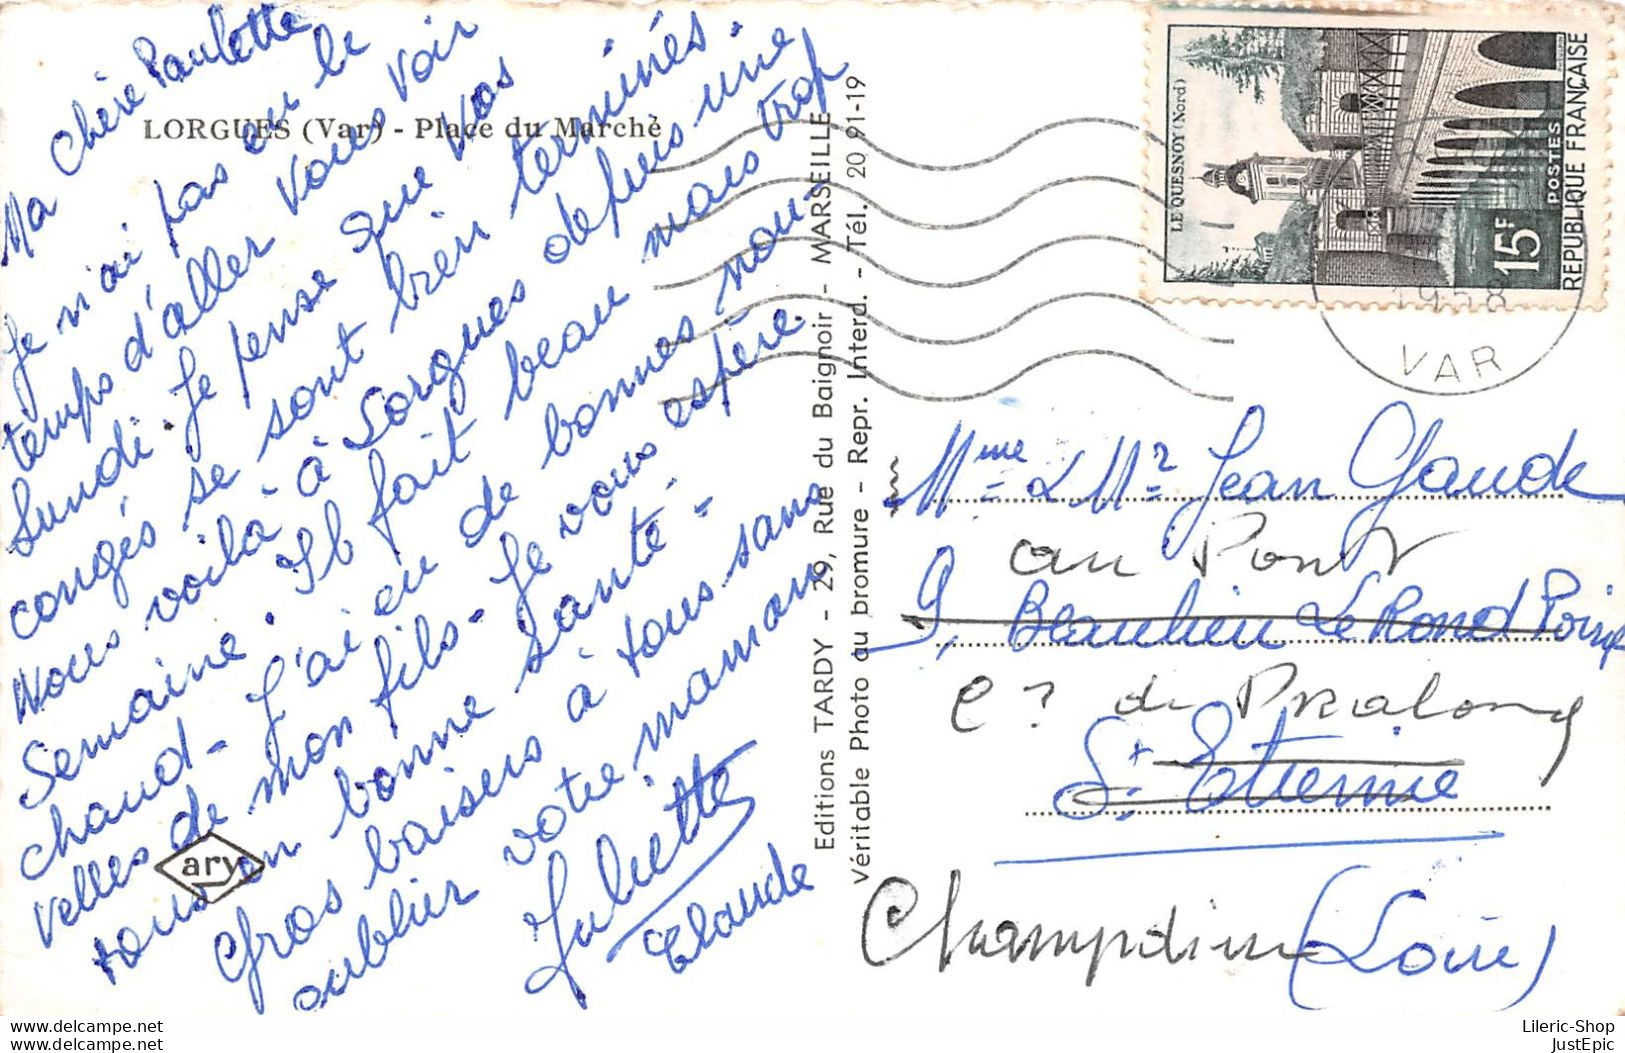 LORGUES (Var) - Place du Marché
Ma chère Paulette
Je n'ai pas eu le
temps d'aller vous voir
Lundi. Je pense que vos
congés se sont bien terminés.
Nous voilà à Lorgues depuis une
Semaine. Il fait beau mais trop
chaud - J'ai eu de bonnes nou-
velles de mon fils - Je vous espère
tous en bonne santé -
Gros baisers à tous sans
oublier votre maman
Juliette
Claude
ary
Editions TARDY - 29, Rue du Baignoir - MARSEILLE
Véritable Photo au bromure - Repr. Interd. - Tél. 20 91-19
LE QUESNOY (Nord)
15F
POSTES
REPUBLIQUE FRANÇAISE
1958
VAR
Mme & Mr Jean Glaude
au Pont
9, Beaulieu Le Rond Point
de Pralong
St Etienne
Champdieu (Loire)
delcampe.net
delcampe.net
Lileric-Shop
JustEpic